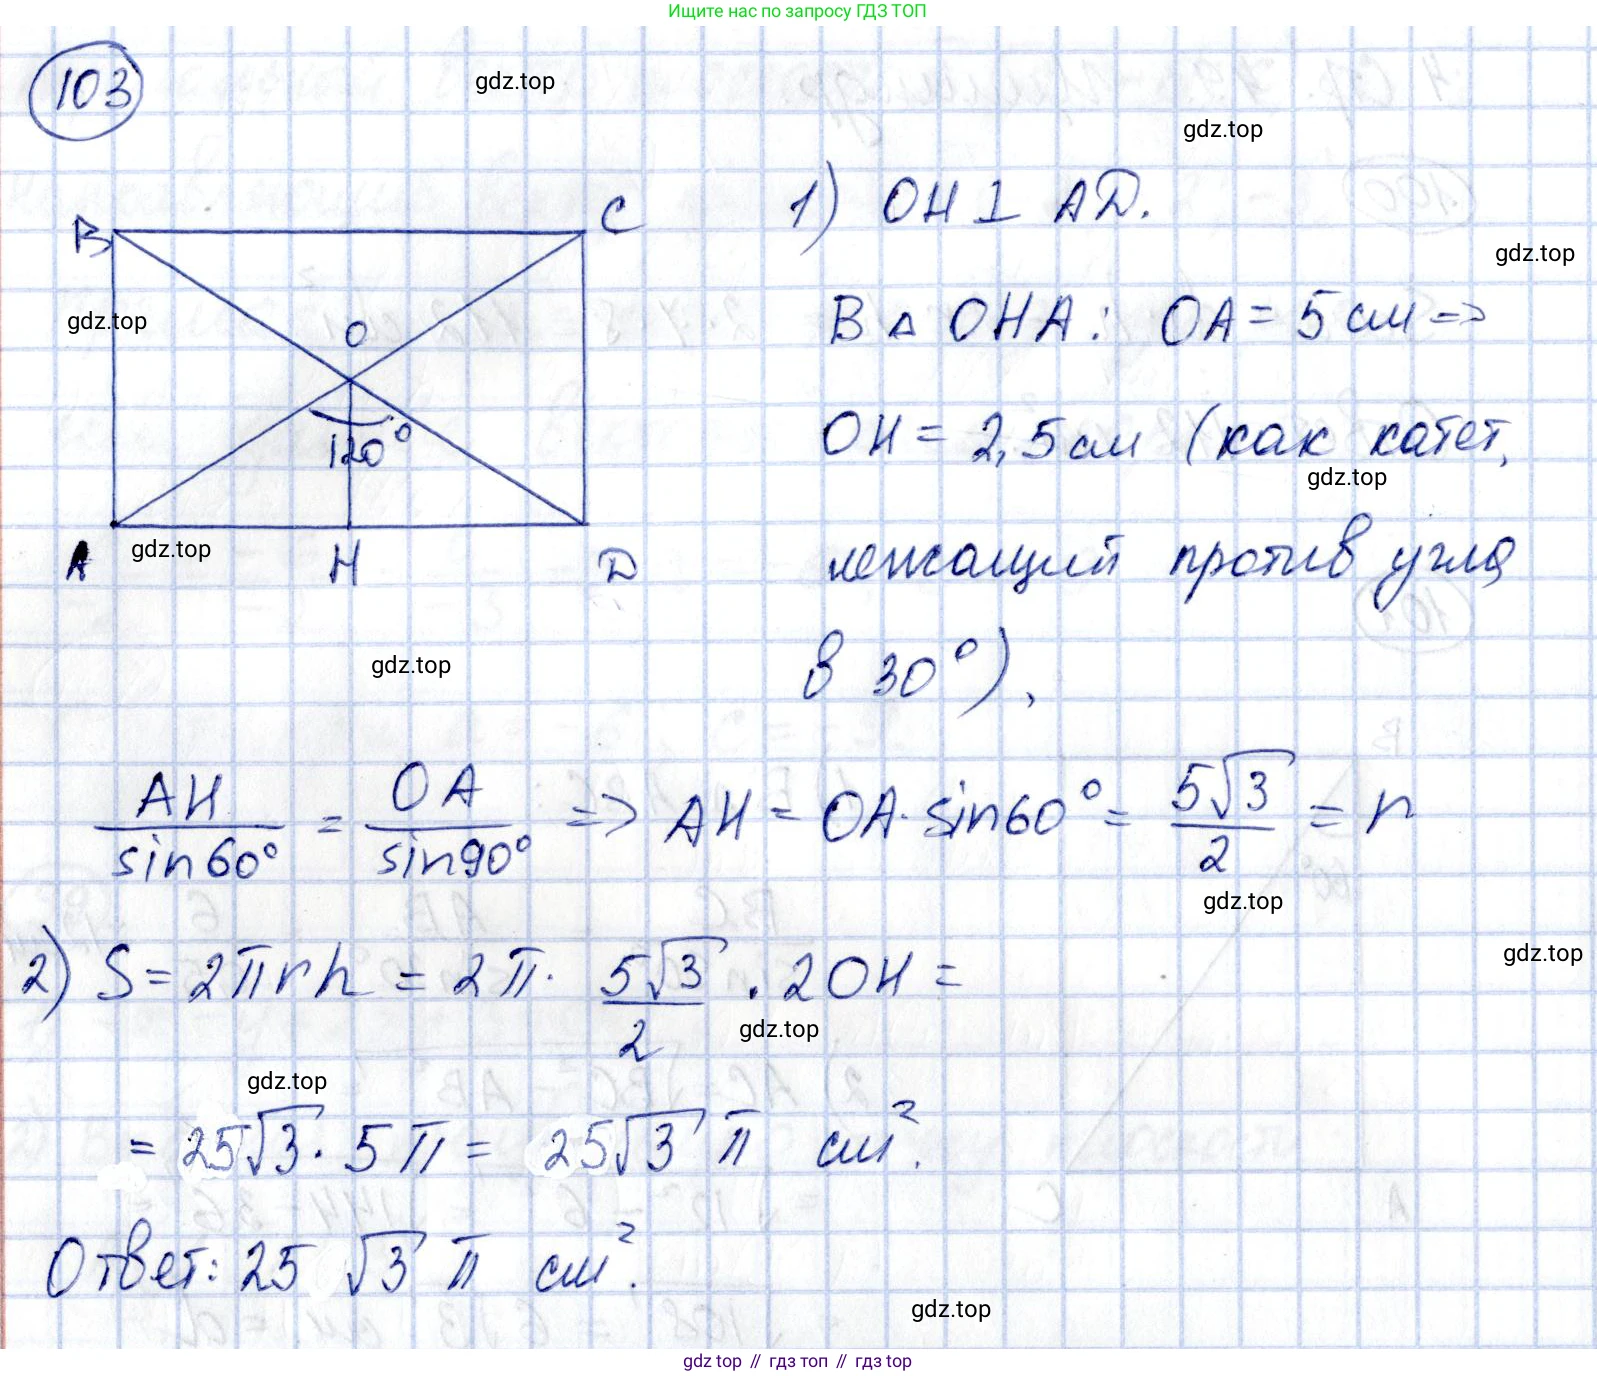 Ищите нас по запросу ГДЗ ТОП
103
gdz.top
gdz.top
B
C
1) OH ⊥ AD.
gdz.top
gdz.top
O
В △ OHA: OA = 5 см =>
120°
OH = 2,5 см (как катет,
gdz.top
A
gdz.top
H
D
лежащий против угла
gdz.top
в 30°).
AH/sin60° = OA/sin90° => AH = OA · sin60° = 5√3/2 = r
gdz.top
gdz.top
2) S = 2πrh = 2π · 5√3/2 · 2OH =
gdz.top
gdz.top
= 25√3 · 5π = 25√3 π см².
Ответ: 25 √3 π см².
gdz.top
gdz.top // гдз топ // gdz.top